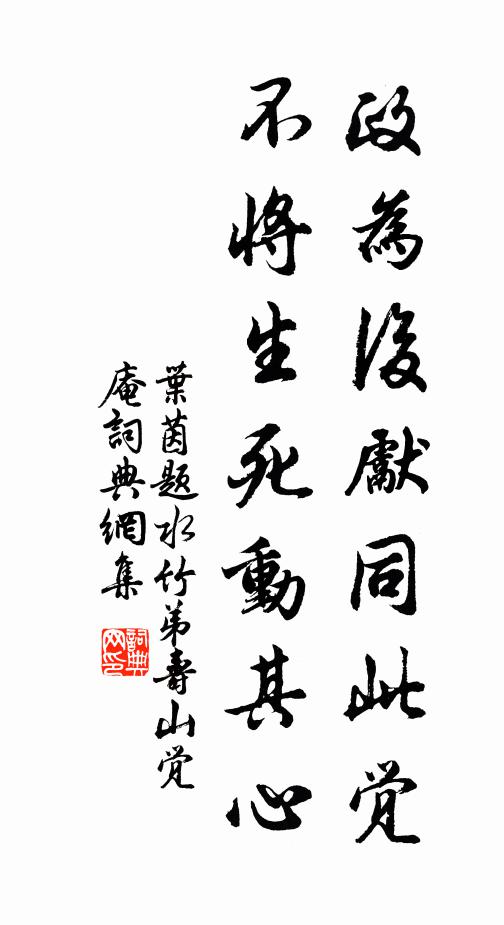 政為後獻同此觉
不將生死動其心
葉茵题水竹弟壽山觉
庵詞典網集
詞典网印